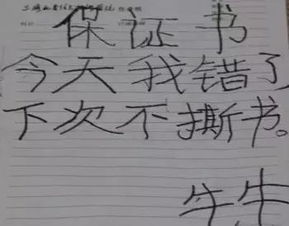 保证书
今天我错了
下次不撕书。
牛牛